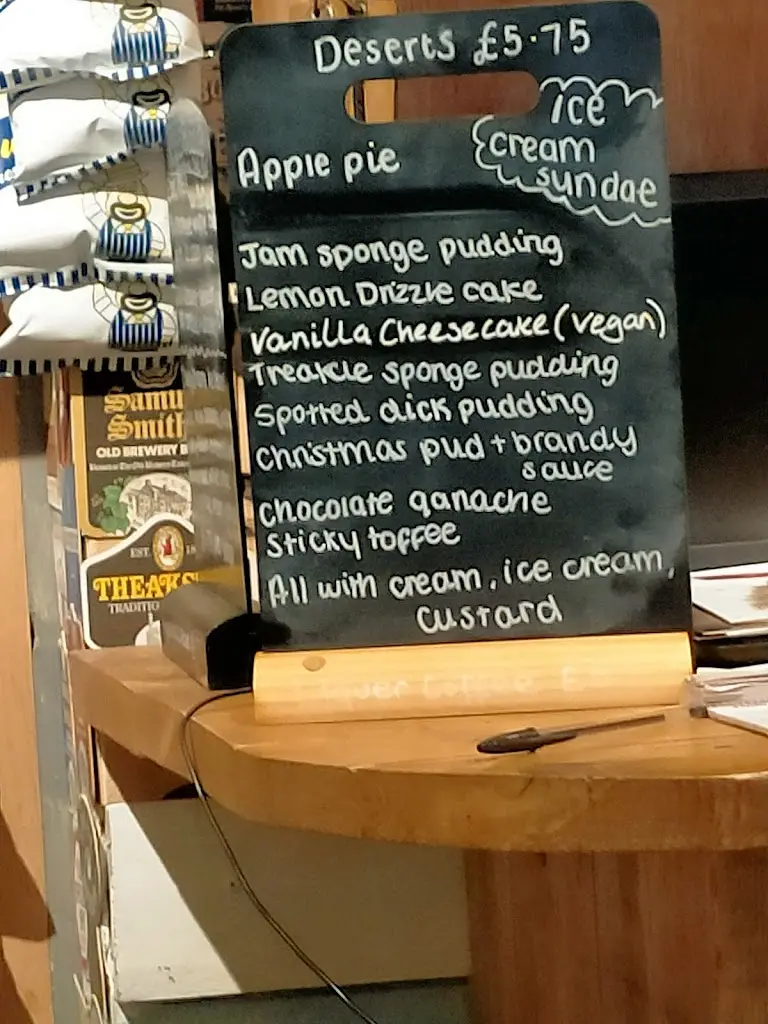 Deserts £5.75
ice
cream
sundae
Apple pie
Jam sponge pudding
Lemon Drizzle cake
Vanilla Cheesecake (vegan)
Treakle sponge pudding
Spotted dick pudding
Christmas pud + brandy
sauce
chocolate ganache
sticky toffee
All with cream, ice cream,
custard
Samu
Smith
OLD BREWERY B
EST.
THEAKS
TRADITIO